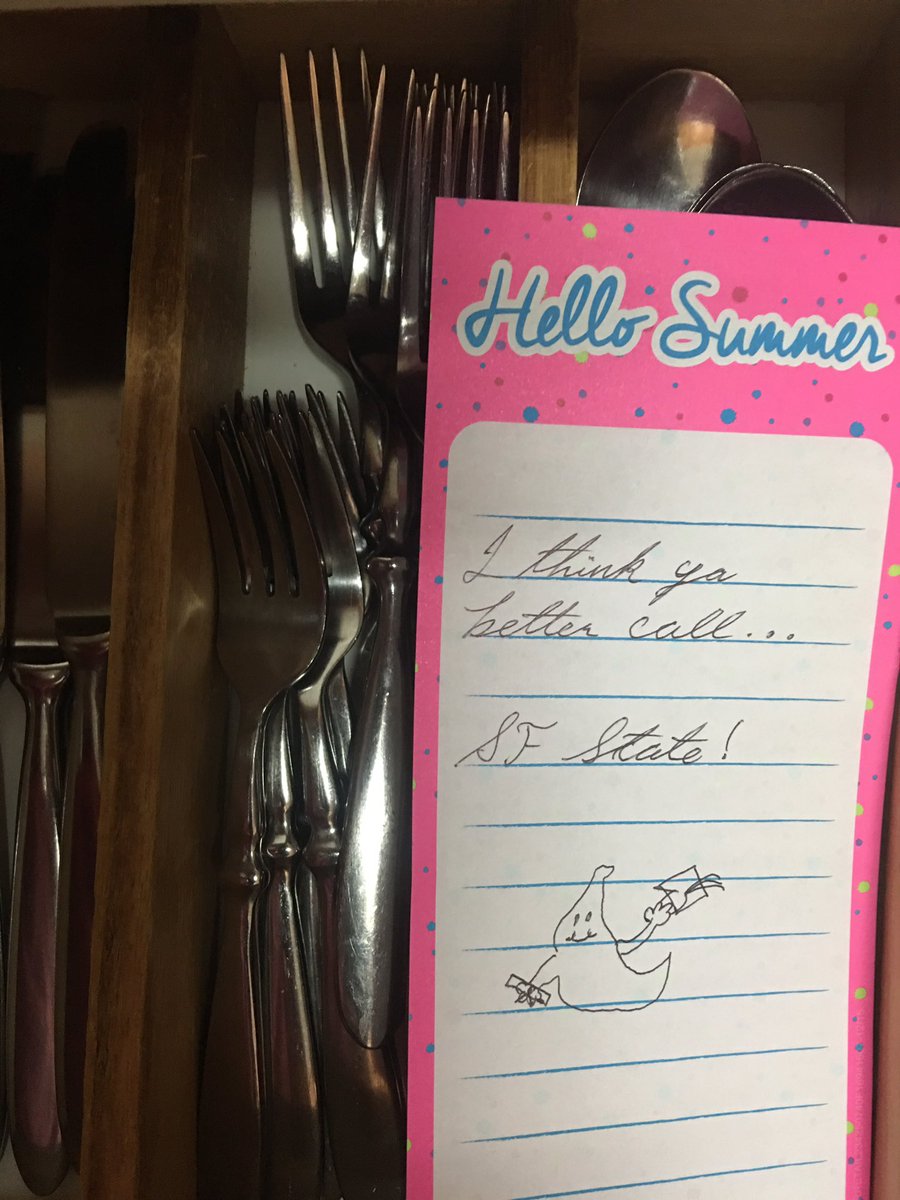 Hello Summer
I think ya
better call...
SF State!